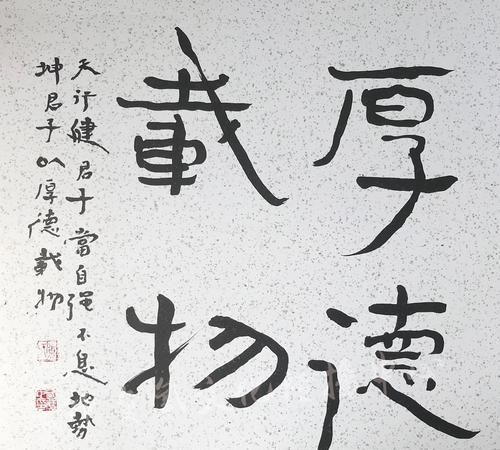 厚德
載物
天行健君子當自强不息地勢
坤君子以厚德載物